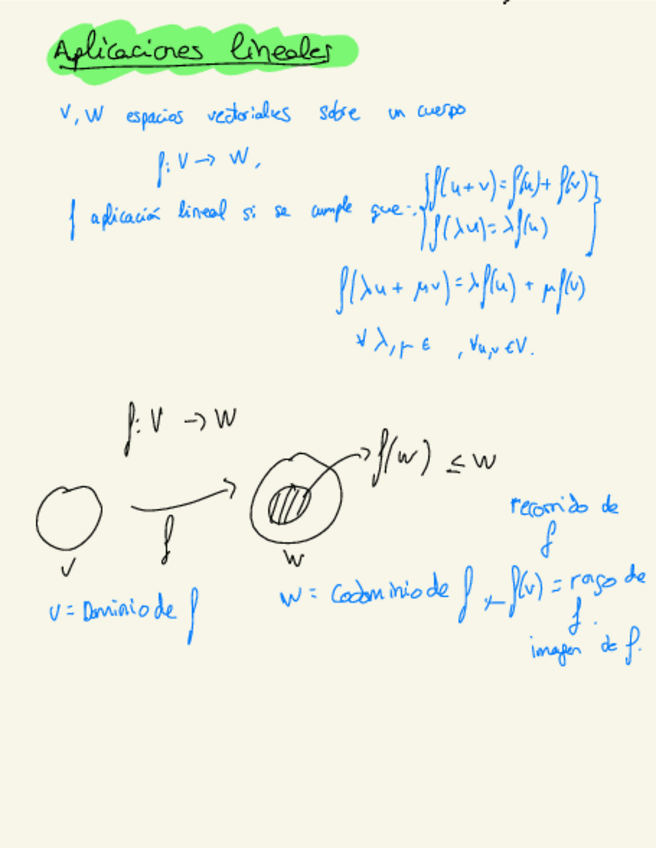 Aplicaciones lineales
V, W espacios vectoriales sobre un cuerpo
f: V → W,
f aplicación lineal si se cumple que: {f(u+v)=f(u)+f(v)
f(λu)=λf(u)}
f(λu + μv)=λf(u) + μf(v)
∀ λ, μ ∈ , ∀u,v ∈V.
f: V → W
f(w) ≤ W
f
V
W
recorrido de
f
V = Dominio de f
W = Codominio de f f(v) = rango de
f.
imagen de f.